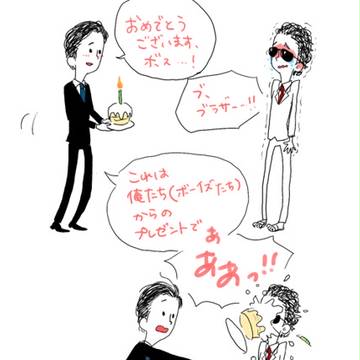 おめでとう
ございます、
ボス…!
ブ、
ブラザー…!!
これは
俺たち(ボーイズたち)
からの
プレゼントで
ぁ
ああっ!!